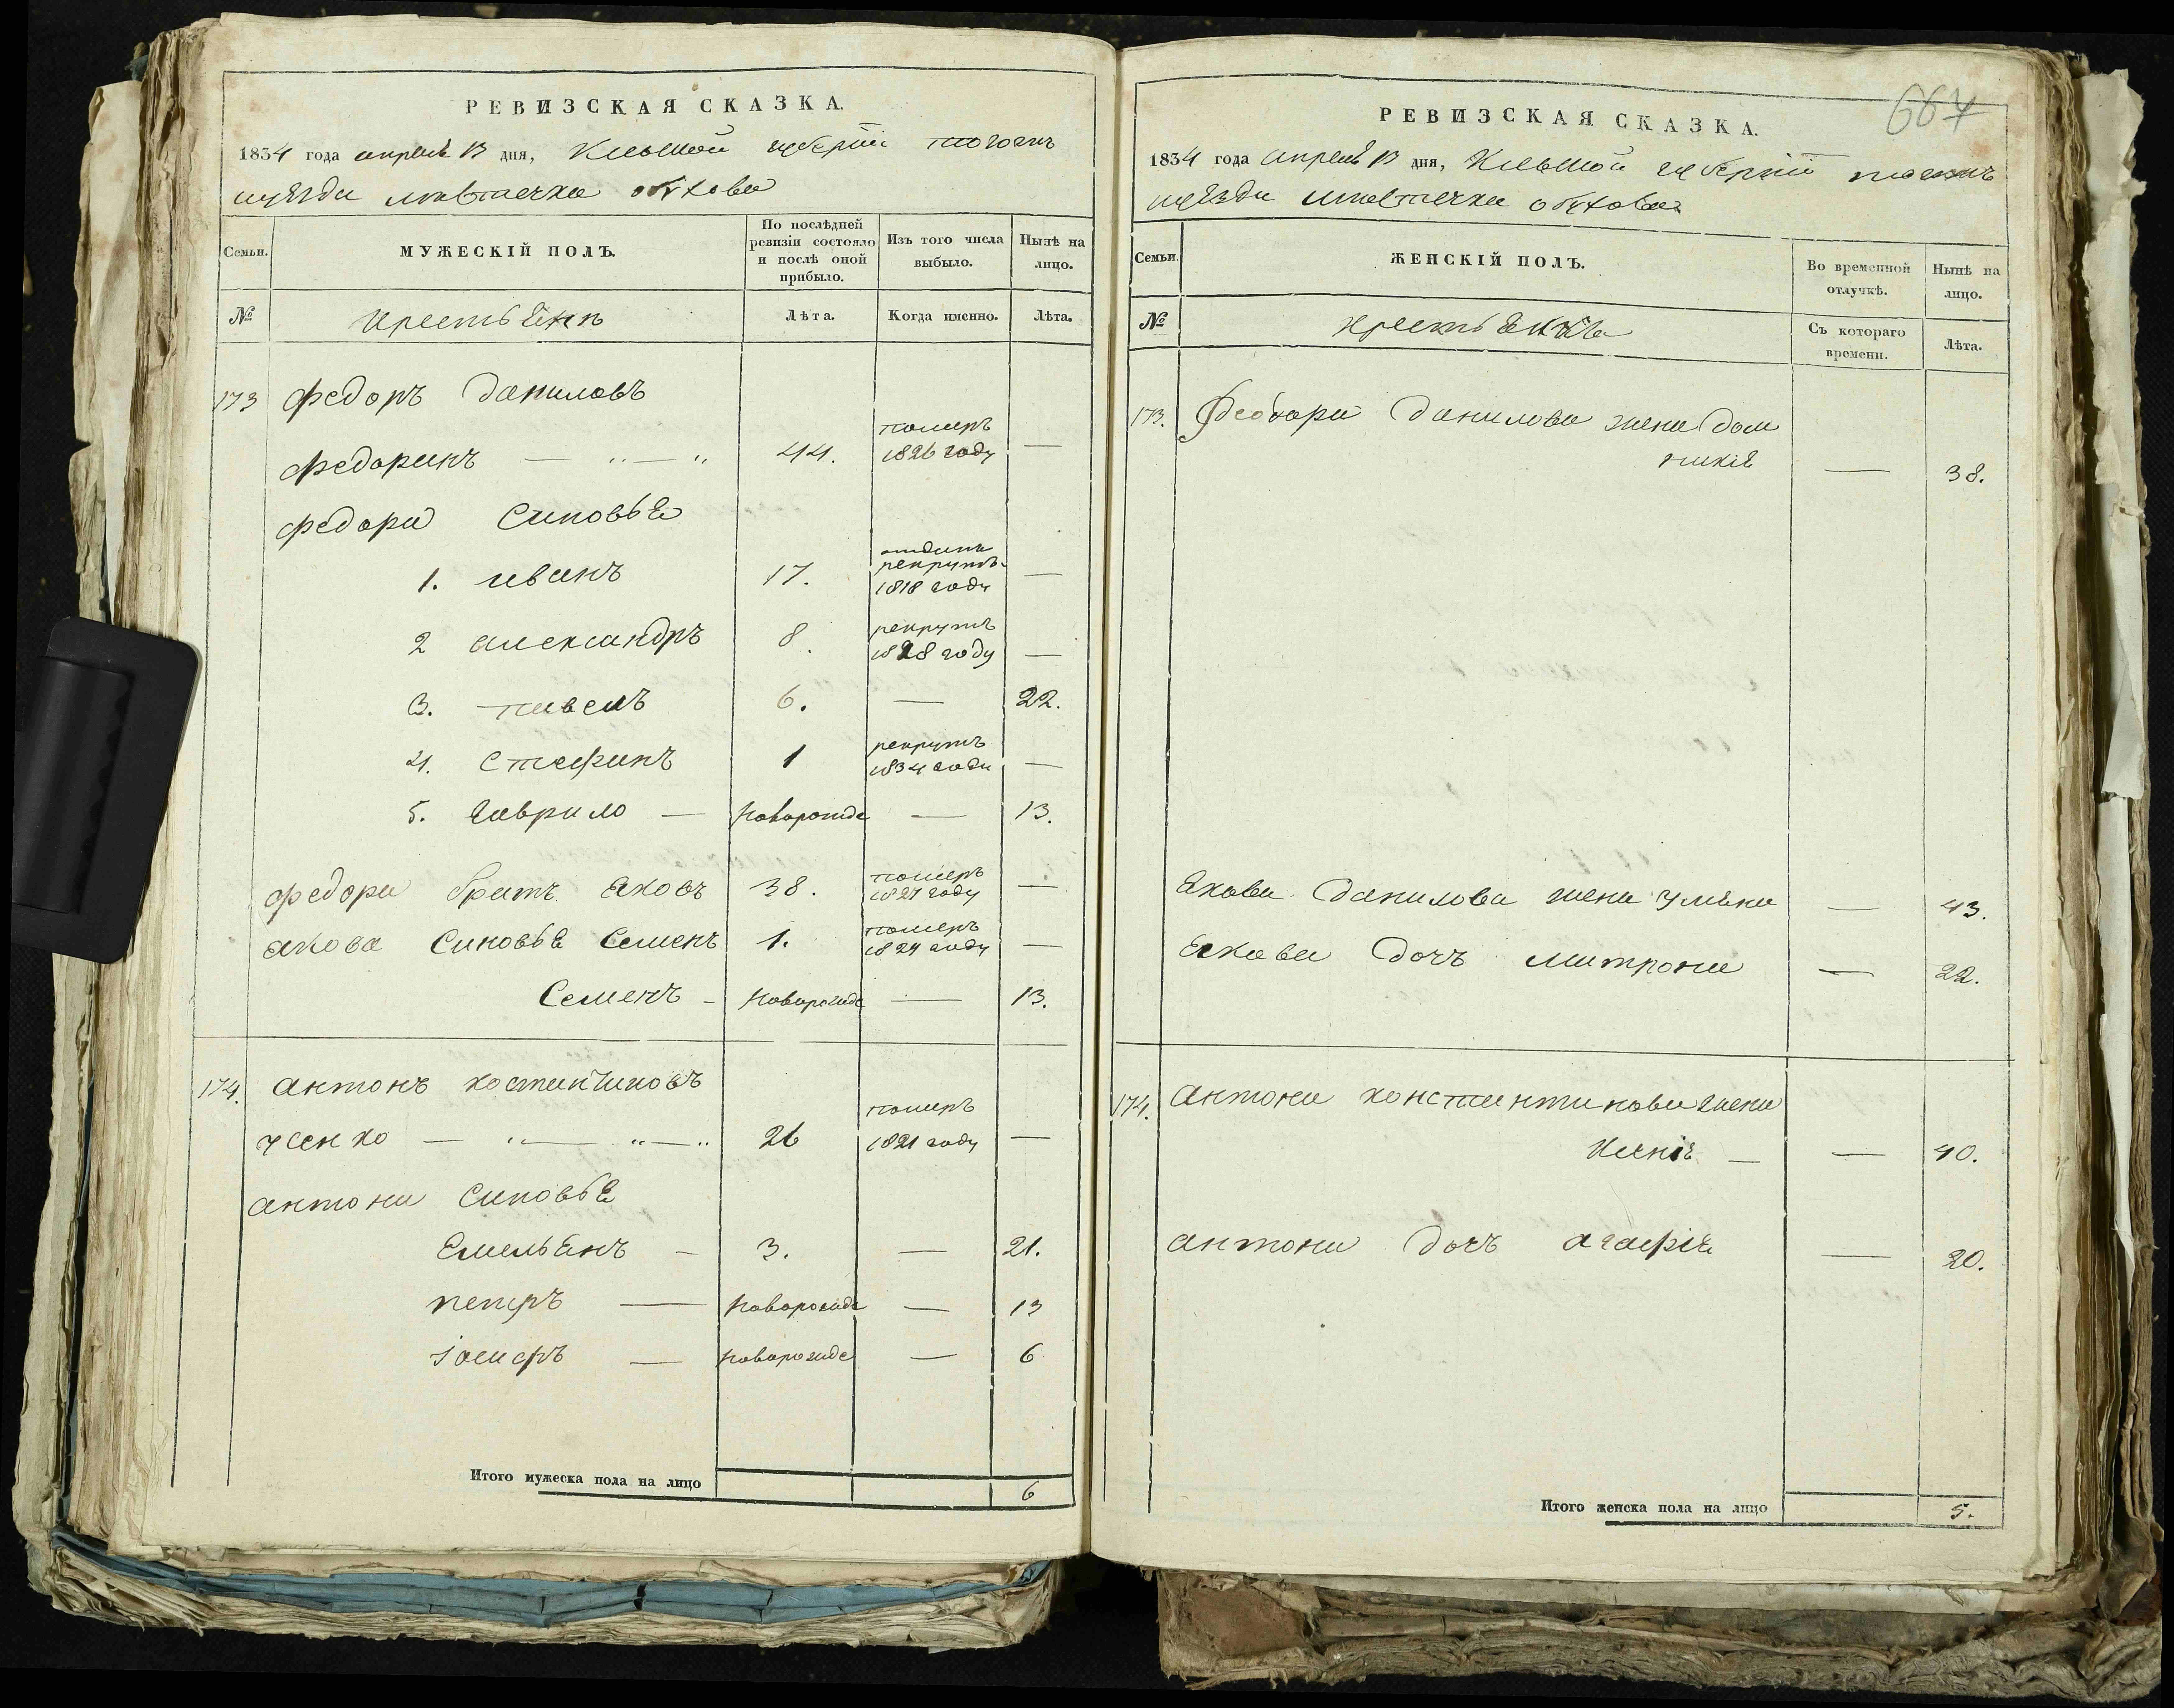 РЕВИЗСКАЯ СКАЗКА.
1834 года апреля 13 дня, Киевской губернiи
уезда местечка обухова
Семьи.
МУЖЕСКІЙ ПОЛЪ.
По послѣдней ревизіи состояло и послѣ оной прибыло.
Изъ того числа выбыло.
Нынѣ на лицо.
№
Лѣта.
Когда именно.
Лѣта.
173 федоръ даниловъ
федоринъ — „ — „ 44. померъ 1826 году —
федора синовья
1. иванъ 17. отданъ рекрутъ 1818 году —
2 александръ 8. рекрутъ 1828 году —
3. павелъ 6. — 22.
4. стефанъ 1 рекрутъ 1834 году —
5. гаврило — новорожде — 13.
федора братъ яковъ 38. померъ 1827 году —
якова синовья семенъ 1. померъ 1824 году —
семенъ — новорожде — 13.
174. антонъ
26 померъ 1821 году —
антона синовья
емельянъ — 3. — 21.
петръ — новорожде — 13
іосифъ — новорожде — 6
Итого мужеска пола на лицо 6
667
РЕВИЗСКАЯ СКАЗКА.
1834 года апреля 13 дня, Киевской губернiи
уезда местечка обухова
Семьи.
ЖЕНСКІЙ ПОЛЪ.
Во временной отлучкѣ.
Нынѣ на лицо.
№
Съ котораго времени.
Лѣта.
173. Феодора данилова жена дом
никія — 38.
якова данилова жена уляна — 43.
якова дочъ матрона — 22.
174. антона константинова жена
— — 40.
антона дочъ агафія — 20.
Итого женска пола на лицо 5.